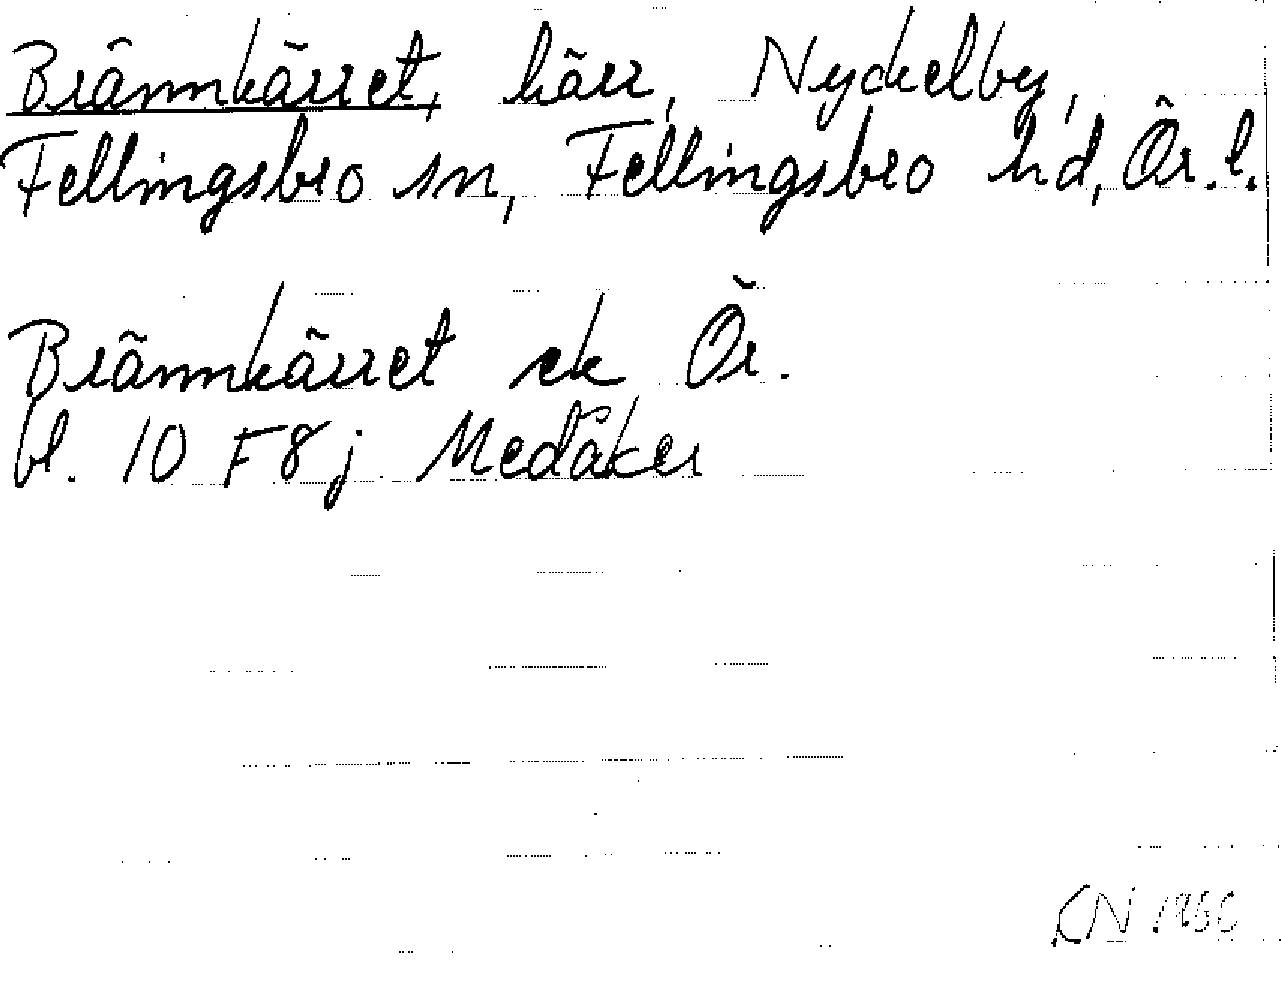 Brännkärret, kärr, Nyckelby,
Fellingsbro sn, Fellingsbro hd, Ör. l.
Brännkärret ek Ör.
bl. 10 F 8 j Medåker